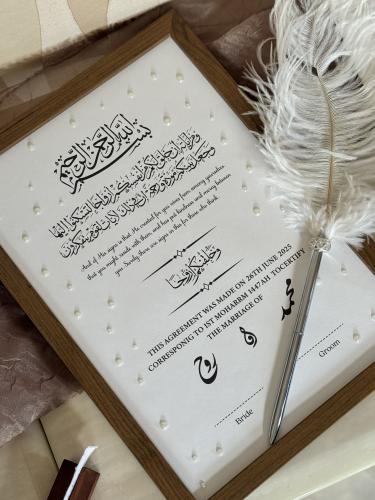 بسم الله الرحمن الرحيم
ومن آياته أن خلق لكم من أنفسكم أزواجا لتسكنوا إليها
وجعل بينكم مودة ورحمة إن في ذلك لآيات لقوم يتفكرون
And of His signs is that He created for you wives from among yourselves,
that you might reside with them, and has put kindness and mercy between
you. Surely there are signs in this for those who think.
وخلقناكم أزواجا
THIS AGREEMENT WAS MADE ON 26TH JUNE 2025
CORRESPONIG TO 1ST MOHARRM 1447 AH TOCERTIFY
THE MARRIAGE OF
محمد
و
روح
Groom
Bride